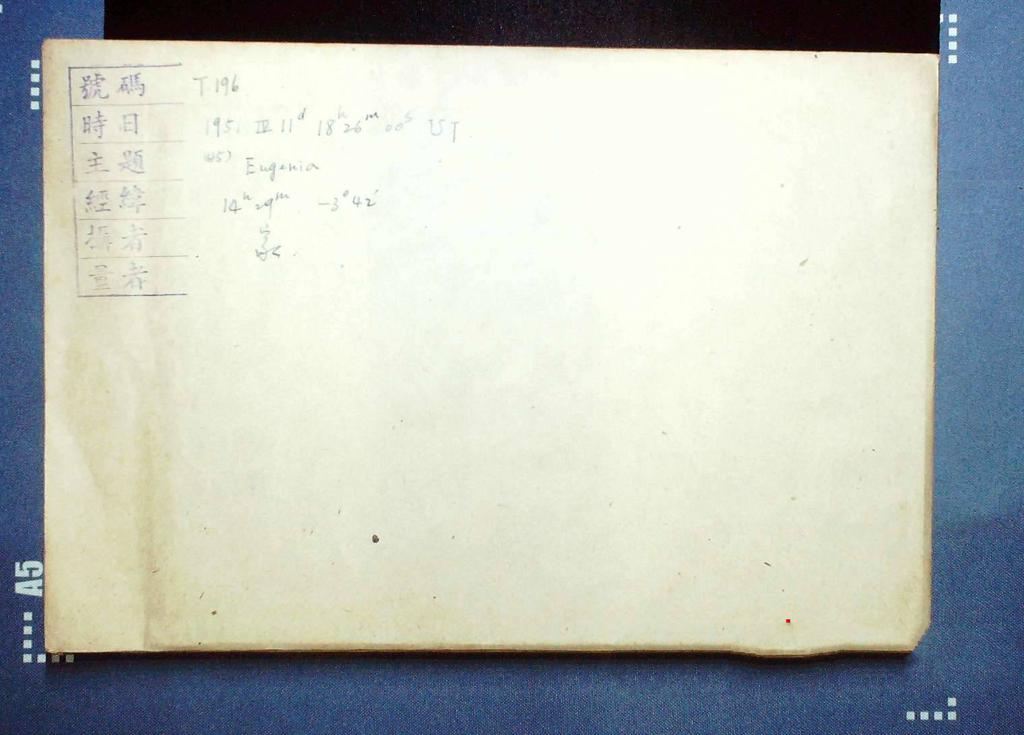 號碼 T 196
時日 1951 IV 11ᵈ 18ʰ26ᵐ00ˢ UT
主題 (45) Eugenia
經緯 14ʰ29ᵐ -3°42'
攝者
量者
A5